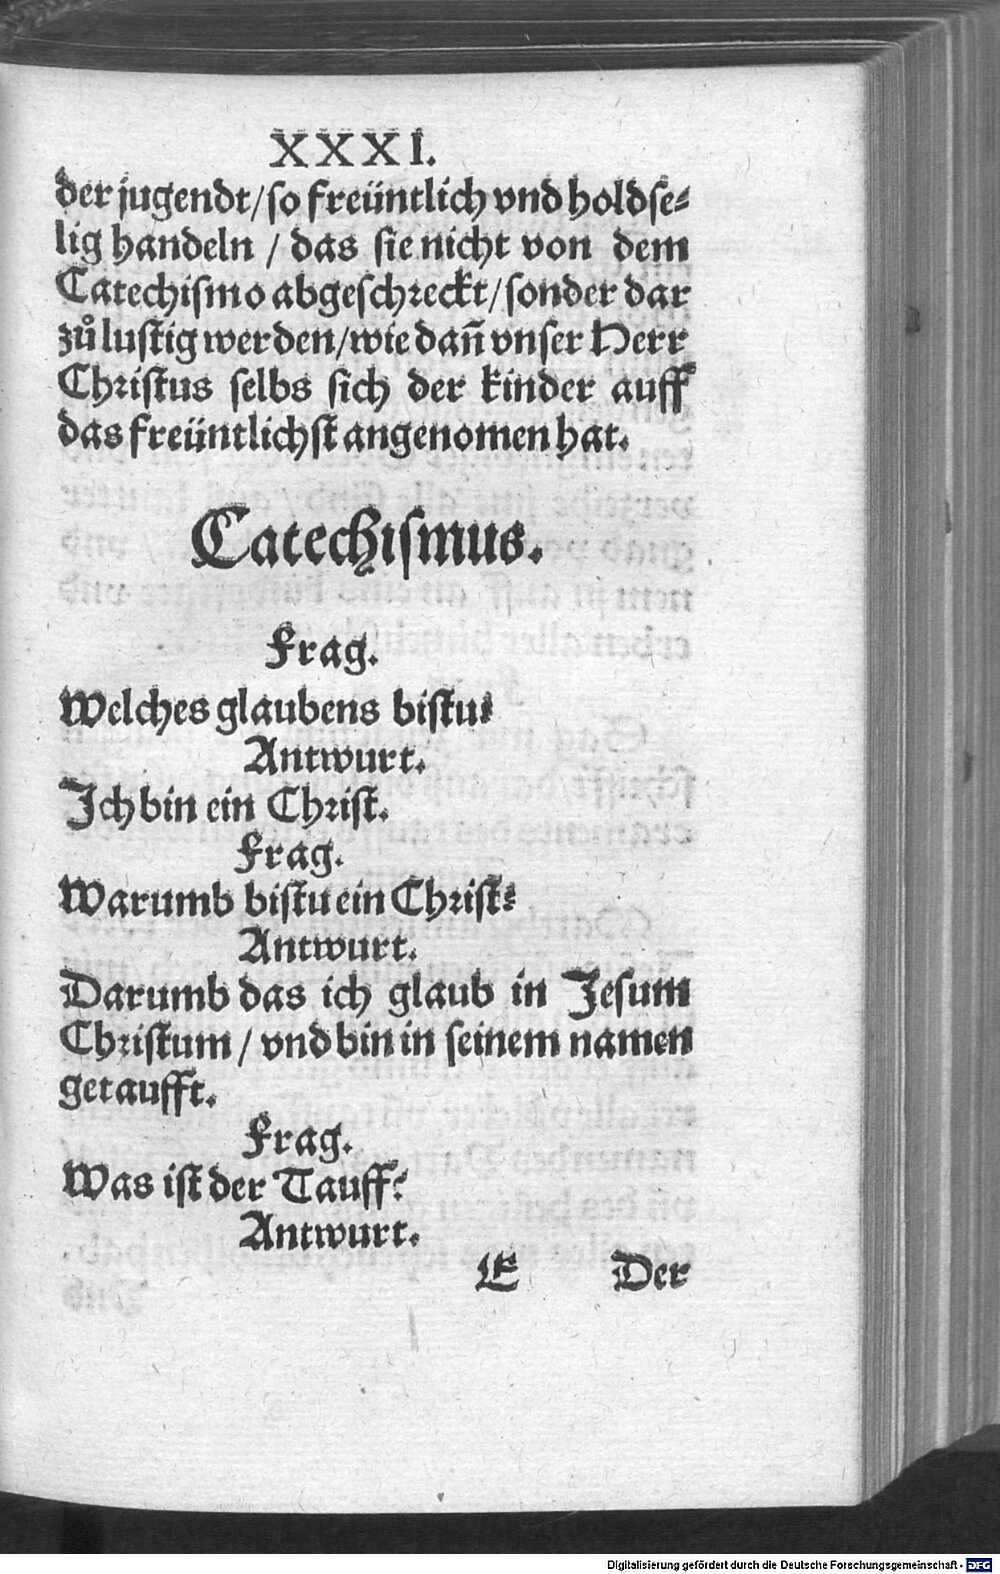 XXXI.
der jugendt/so freüntlich vnd holdse⸗
lig handeln / das sie nicht von dem
Catechismo abgeschreckt/sonder dar
zuͦ lustig werden/wie dañ vnser Herr
Christus selbs sich der kinder auff
das freüntlichst angenomen hat.
Catechismus.
Frag.
Welches glaubens bistu?
Antwurt.
Ich bin ein Christ.
Frag.
Warumb bistu ein Christ?
Antwurt.
Darumb das ich glaub in Jesum
Christum / vnd bin in seinem namen
getaufft.
Frag.
Was ist der Tauff?
Antwurt.
E Der
Digitalisierung gefördert durch die Deutsche Forschungsgemeinschaft - DFG